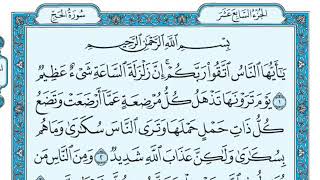 سُورَةُ الحَجِّ
الجُزْءُ السَّابِعَ عَشَرَ
بِسْمِ اللَّهِ الرَّحْمَٰنِ الرَّحِيمِ
يَا أَيُّهَا النَّاسُ اتَّقُوا رَبَّكُمْ إِنَّ زَلْزَلَةَ السَّاعَةِ شَيْءٌ عَظِيمٌ
١ يَوْمَ تَرَوْنَهَا تَذْهَلُ كُلُّ مُرْضِعَةٍ عَمَّا أَرْضَعَتْ وَتَضَعُ
كُلُّ ذَاتِ حَمْلٍ حَمْلَهَا وَتَرَى النَّاسَ سُكَارَىٰ وَمَا هُم
بِسُكَارَىٰ وَلَٰكِنَّ عَذَابَ اللَّهِ شَدِيدٌ ٢ وَمِنَ النَّاسِ مَن